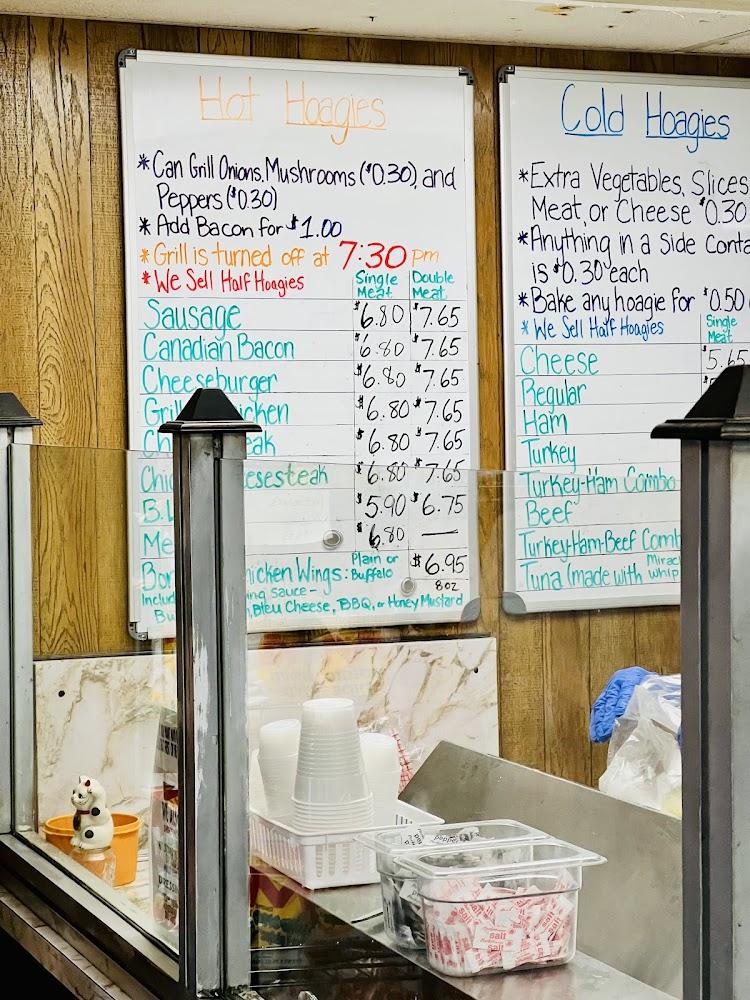 Hot Hoagies
* Can Grill Onions, Mushrooms ($0.30), and
Peppers ($0.30)
* Add Bacon for $1.00
* Grill is turned off at 7:30 pm
* We Sell Half Hoagies
Single Meat
Double Meat
Sausage $6.80 $7.65
Canadian Bacon $6.80 $7.65
Cheeseburger $6.80 $7.65
Gril icken $6.80 $7.65
Ch ak $6.80 $7.65
Chic esesteak $6.80 $7.65
B.L $5.90 $6.75
Me $6.80 —
Bon hicken Wings: Plain or Buffalo $6.95
8oz
Includ ng sauce -
Bu , Bleu Cheese, BBQ, or Honey Mustard
Cold Hoagies
* Extra Vegetables, Slices
Meat, or Cheese $0.30
* Anything in a Side Conta
is $0.30 each
* Bake any hoagie for $0.50
* We Sell Half Hoagies
Single Meat
Cheese $5.65
Regular
Ham
Turkey
Turkey-Ham Combo
Beef
Turkey-Ham-Beef Comb
Tuna (made with Mirac whip
pepper
salt
salt
salt